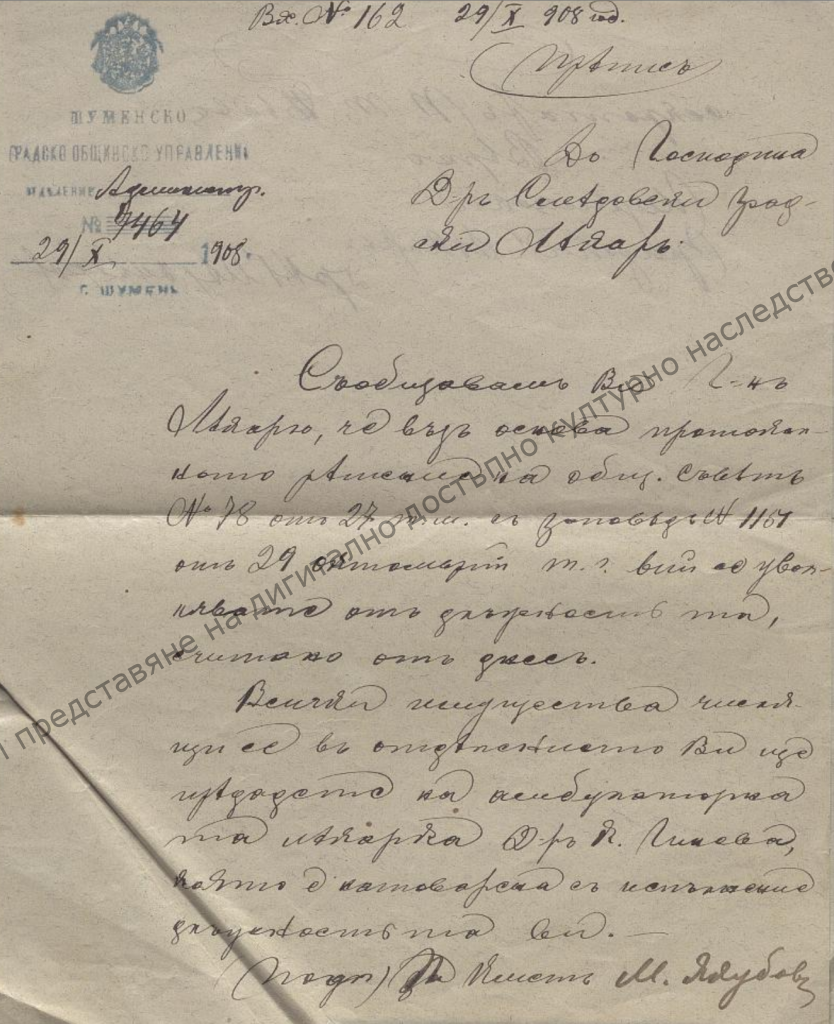 Вх. № 162 29/X 908 год.
Прѣписъ
ШУМЕНСКО
ГРАДСКО ОБЩИНСКО УПРАВЛЕНИЕ
ОТДѢЛЕНИЕ Администр.
№ 7464
29/X 1908.
Г. ШУМЕНЪ
До Господина
Д-ръ Смѣдовски град-
ски Лѣкарь.
Съобщавамъ Ви Г-нъ
Лѣкарю, че въз основа протокол-
ното рѣшение на общ. съветъ
№ 78 отъ 27 т.м. съ заповѣдь № 1151
отъ 29 октомврий т. г. вий се увол-
нявате отъ длъжностьта,
считано отъ днесъ.
Всички имущества числя-
щи се въ отдѣлението Ви ще
прѣдадете на амбулаторна
та лѣкарка Д-ръ К. Гинева,
която е натоварена съ испълнение
длъжностьта ви. —
(подп.) За Кметъ М. Якубовъ
представяне на дигитално достъпно културно наследство